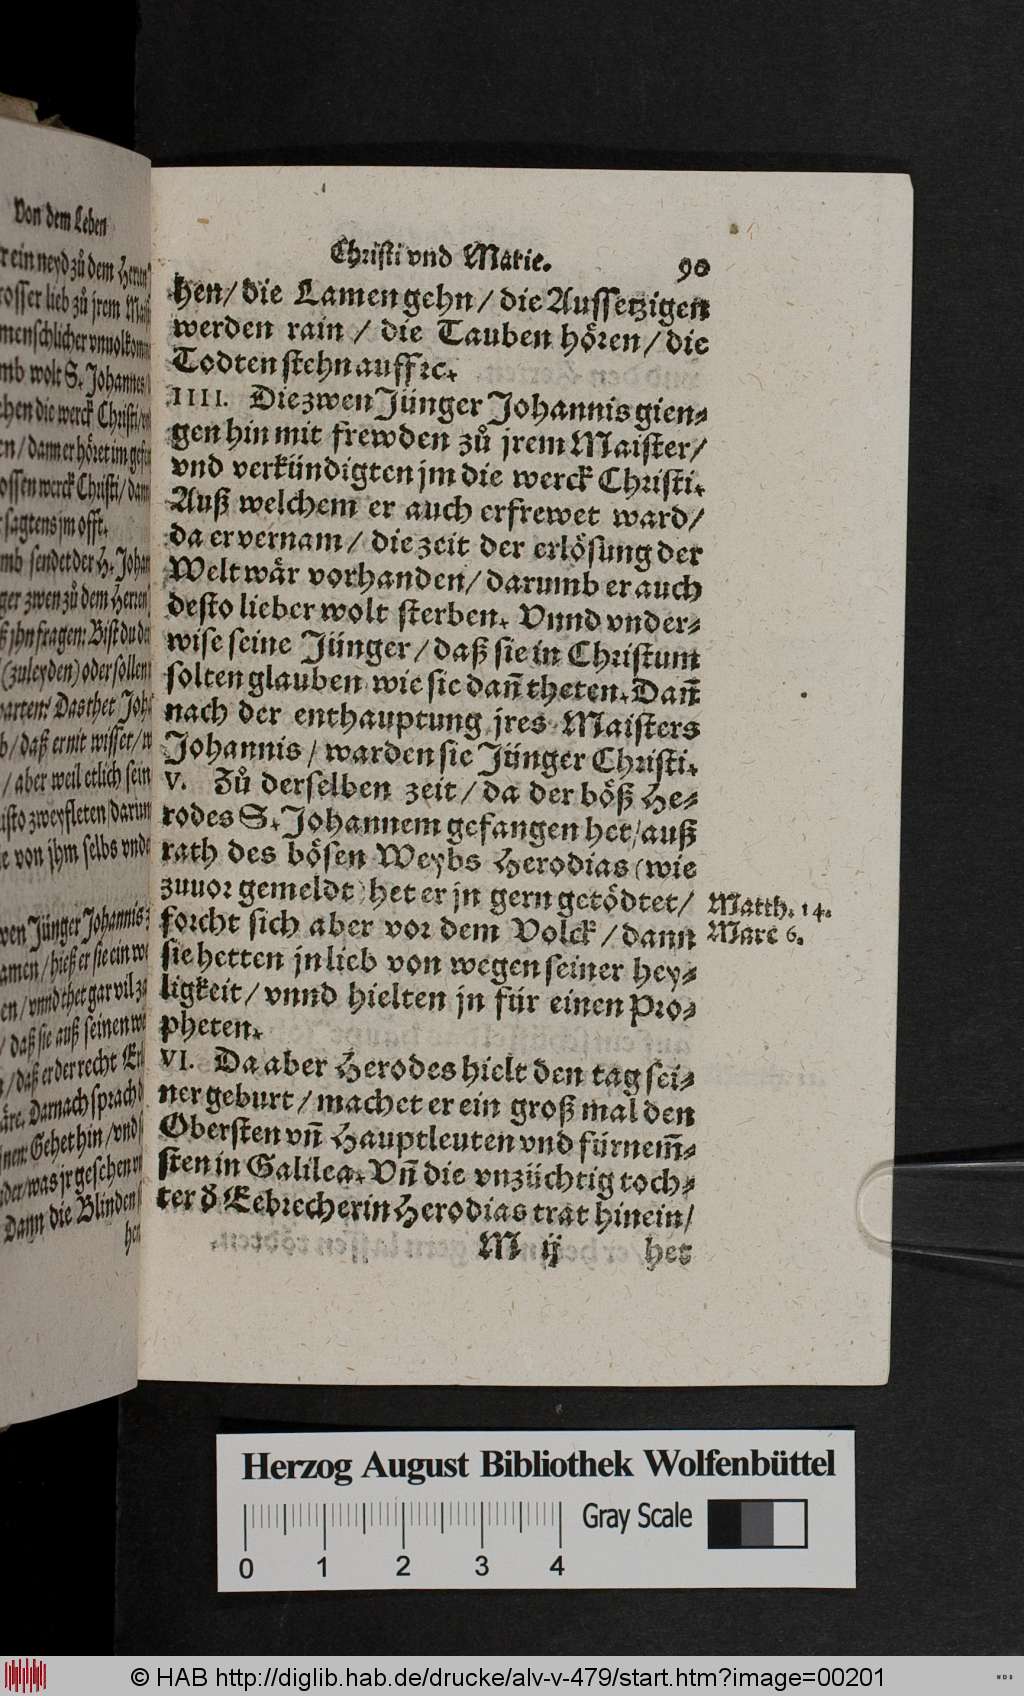 Von dem Leben
ein neyd zů dem Herren
osser lieb zů jrem
menschlicher vnuolkom
mb wolt S. Johannes
hen die werck Christi/
en/dann er höret im
ossen werck Christi/dann
sagtens jm offt.
mb sendet der H. Johan
ger zwen zů dem Herren
ß jhn fragen: Bist du
(zuleyden) oder sollen
arten? Das thet Joh
b/daß er nit wisset/
/aber weil etlich sein
isto zweyfleten/darum
e von jhm selbs vnde
wen Jünger Johannis
amen/hieß er sie ein
en/vnnd thet gar vil
/daß sie auß seinen
/daß er der recht
äre. Darnach sprach
nen: Gehet hin/vnd
der/was jr gesehen
Dann die Blinden
hen
Christi vnd Marie. 90
hen/die Lamen gehn/die Aussetzigen
werden rain/die Tauben hören/die
Todten stehn auff ꝛc.
IIII. Die zwen Jünger Johannis gien⸗
gen hin mit frewden zů jrem Maister/
vnd verkündigten jm die werck Christi.
Auß welchem er auch erfrewet ward/
da er vernam/die zeit der erlösung der
Welt wär vorhanden/darumb er auch
desto lieber wolt sterben. Vnnd vnder⸗
wise seine Jünger/daß sie in Christum
solten glauben wie sie dañ theten. Dañ
nach der enthauptung jres Maisters
Johannis/warden sie Jünger Christi.
V. Zů derselben zeit/da der böß He⸗
rodes S. Johannem gefangen het/auß
rath des bösen Weybs Herodias (wie
zuuor gemeldt) het er jn gern getödtet/
forcht sich aber vor dem Volck/dann
sie hetten jn lieb von wegen seiner hey⸗
ligkeit/vnnd hielten jn für einen Pro⸗
pheten.
Matth. 14.
Marc 6.
VI. Da aber Herodes hielt den tag sei⸗
ner geburt/machet er ein groß mal den
Obersten vñ Hauptleuten vnd fürnem̃⸗
sten in Galilea. Vñ die vnzüchtig toch⸗
ter ð Eebrecherin Herodias trat hinein/
M ij het
Herzog August Bibliothek Wolfenbüttel
Gray Scale
0 1 2 3 4
© HAB http://diglib.hab.de/drucke/alv-v-479/start.htm?image=00201